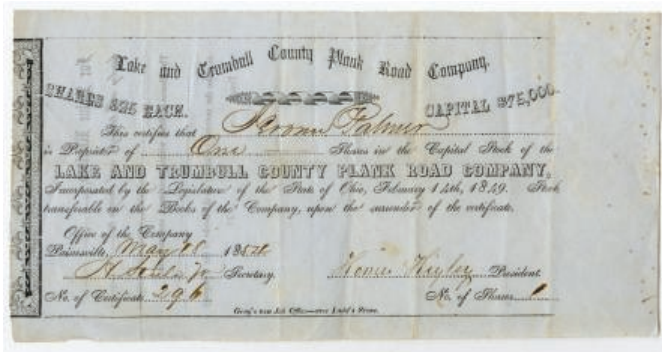 Lake and Trumbull County Plank Road Company.
SHARES $25 EACH. CAPITAL $75,000.
This certifies that Jerome Palmer
is Proprietor of One Shares in the Capital Stock of the
LAKE AND TRUMBULL COUNTY PLANK ROAD COMPANY,
Incorporated by the Legislature of the State of Ohio, February 14th, 1849. Stock
transferable on the Books of the Company, upon the surrender of the certificate.
Office of the Company
Painesville, May 185
Secretary. President.
No. of Certificate 296 No. of Shares 1